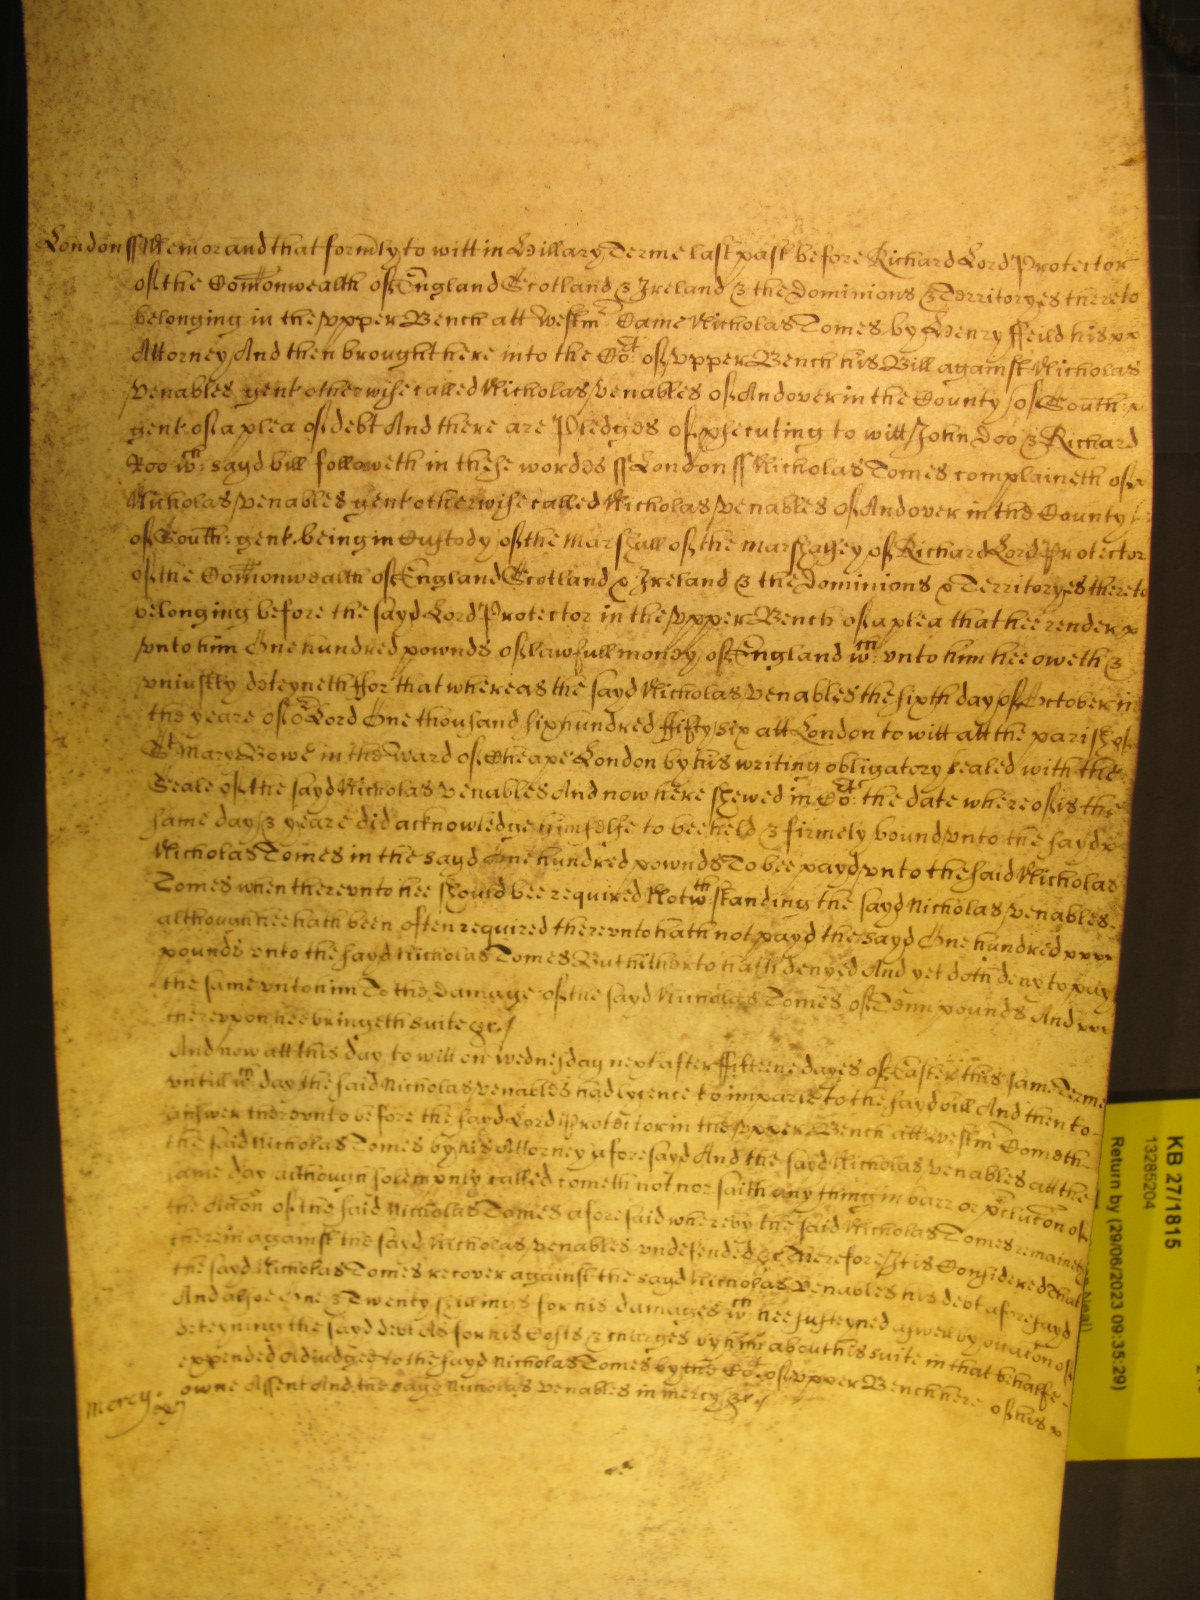 London ss Memorand that formly to witt in Hillary Terme last past before Richard Lord Protector
of the Com̄onwealth of England Scotland & Ireland & the Dominions & Territoryes thereto
belonging in the vpper Bench att Westm̄ Came Nicholas Tomes by Henry ffeild his xx
Attorney And then brought here into the Cot: of vpper Bench his Bill against Nicholas
Venables gent otherwise called Nicholas Venables of Andover in the County of South: x
gent of a plea of debt And there are Pledges of psecuting to witt John Doo & Richard
Roo wch: sayd bill followeth in these wordes ss London ss Nicholas Tomes complaineth of x
Nicholas Venables gent otherwise called Nicholas Venables of Andover in the County
of South: gent being in Custody of the Marshall of the Marshalsey of Richard Lord Protector
of the Com̄onwealth of England Scotland & Ireland & the Dominions & Territoryes thereto
belonging before the sayd Lord Protector in the vpper Bench of a plea that hee render x
vnto him One hundred pownds of lawfull money of England wch: vnto him hee oweth &
vniustly deteyneth ffor that whereas the sayd Nicholas Venables the sixth day of October in
the yeare of or Lord One thousand six hundred ffifty six att London to witt att the parish of
St Mary Bowe in the Ward of Cheape London by his writing obligatory sealed with the
Seale of the sayd Nicholas Venables And now here shewed in Cot: the date whereof is the
same day & yeare did acknowledge himselfe to bee held & firmely bound vnto the sayd x
Nicholas Tomes in the sayd One hundred pownds To bee payd vnto the said Nicholas
Tomes when therevnto hee should bee required Notwth:standing the sayd Nicholas Venables
although hee hath been often required therevnto hath not payd the sayd One hundred xxxx
pounds vnto the sayd Nicholas Tomes But hitherto hath denyed And yet doth deny to pay
the same vnto him To the Damage of the sayd Nicholas Tomes of Tenn pounds And xxx
therevpon hee bringeth suite &c./
And now att this day to witt on Wednesday next after ffifteene dayes of Easter this same Terme
vntill wch day the said Nicholas Venables had lycence to imparle to the sayd bill And then to
answer therevnto before the sayd Lord Protector in the vpper Bench att Westm̄ Cometh
the said Nicholas Tomes by his Attorney aforesayd And the sayd Nicholas Venables att the
same day although solempnly called cometh not nor saith any thing in barr or pclucōn of
the Accōn of the said Nicholas Tomes aforesaid whereby the said Nicholas Tomes remaineth
therein against the sayd Nicholas Venables vndefended &c Therefore It is Considered that
the sayd Nicholas Tomes recover against the sayd Nicholas Venables his debt aforesayd
And alsoe One & Twenty shillings for his damages wch hee susteyned aswell by occacōn of
deteyning the sayd debt As for his Costs & charges by him about his suite in that behalfe
expended Adiudged to the sayd Nicholas Tomes by the Cot: of vpper Bench here of his x
owne Assent And the sayd Nicholas Venables in mercy &c./
mercy
KB 27/1815
13285204
Return by (29/06/2023 09:35:29)
Neal)